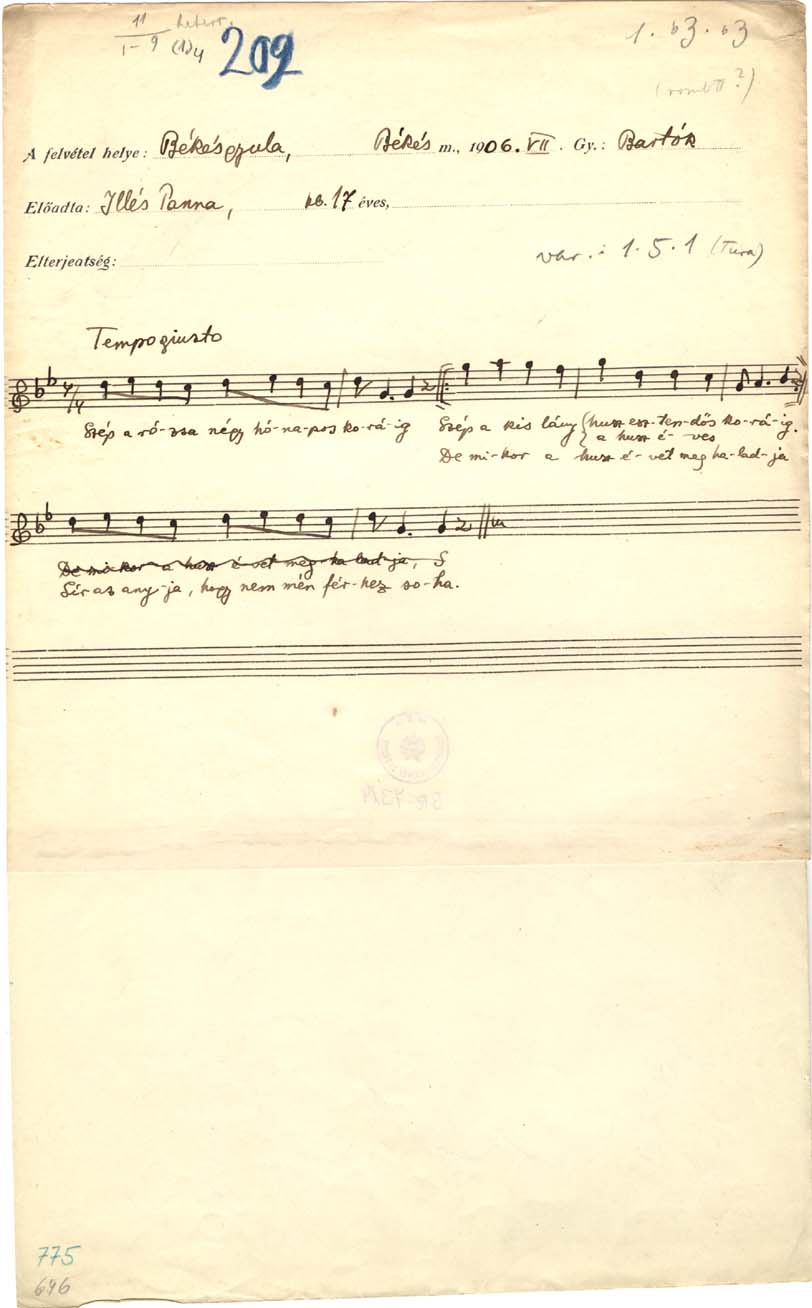 11
1-9 (1)4
202
1. b3. b3
A felvétel helye: Békésgyula, Békés m., 1906. VII. Gy.: Bartók
Előadta: Illés Panna, kb. 17 éves,
Elterjedtség:
var.: 1. 5. 1 (Tura)
Tempo giusto
4/4
Szép a ró-zsa négy hó-na-pos ko-rá-ig Szép a kis lány { husz esz-ten-dős ko-rá-ig.
a husz é-ves
De mi-kor a husz é-vét meg ha-lad-ja
De mi-kor a husz é-vét meg-ha-lad-ja, S
Sír az any-ja, hogy nem mén fér-hez so-ha.
775
646